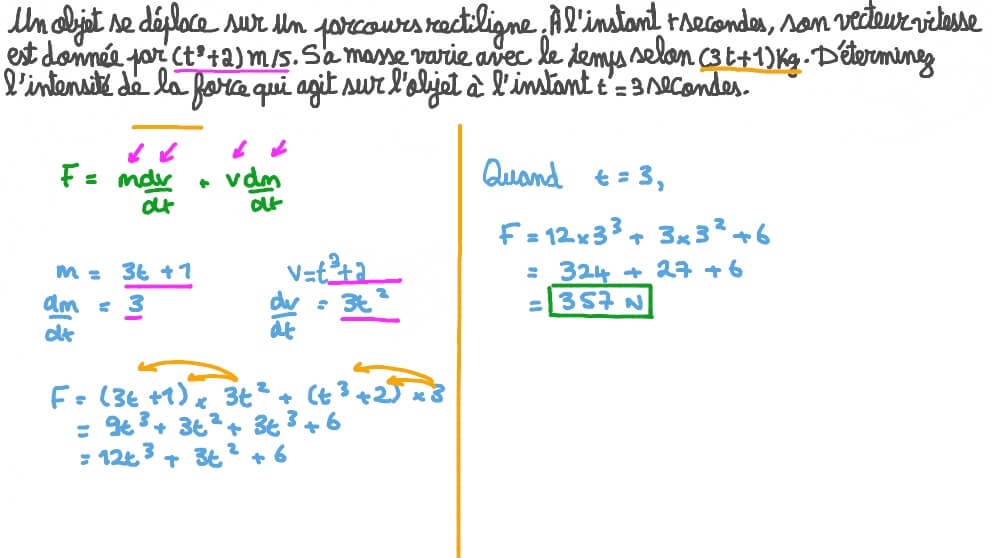 Un objet se déplace sur un parcours rectiligne. À l'instant t secondes, son vecteur vitesse
est donnée par (t³+2) m/s. Sa masse varie avec le temps selon (3t+1)Kg. Déterminez
l'intensité de la force qui agit sur l'objet à l'instant t = 3 secondes.
F = m dv/dt + v dm/dt
m = 3t + 1
dm/dt = 3
v = t³+2
dv/dt = 3t²
F = (3t +1) × 3t² + (t³+2) × 3
= 9t³ + 3t² + 3t³ + 6
= 12t³ + 3t² + 6
Quand t = 3,
F = 12×3³ + 3×3² + 6
= 324 + 27 + 6
= 357 N